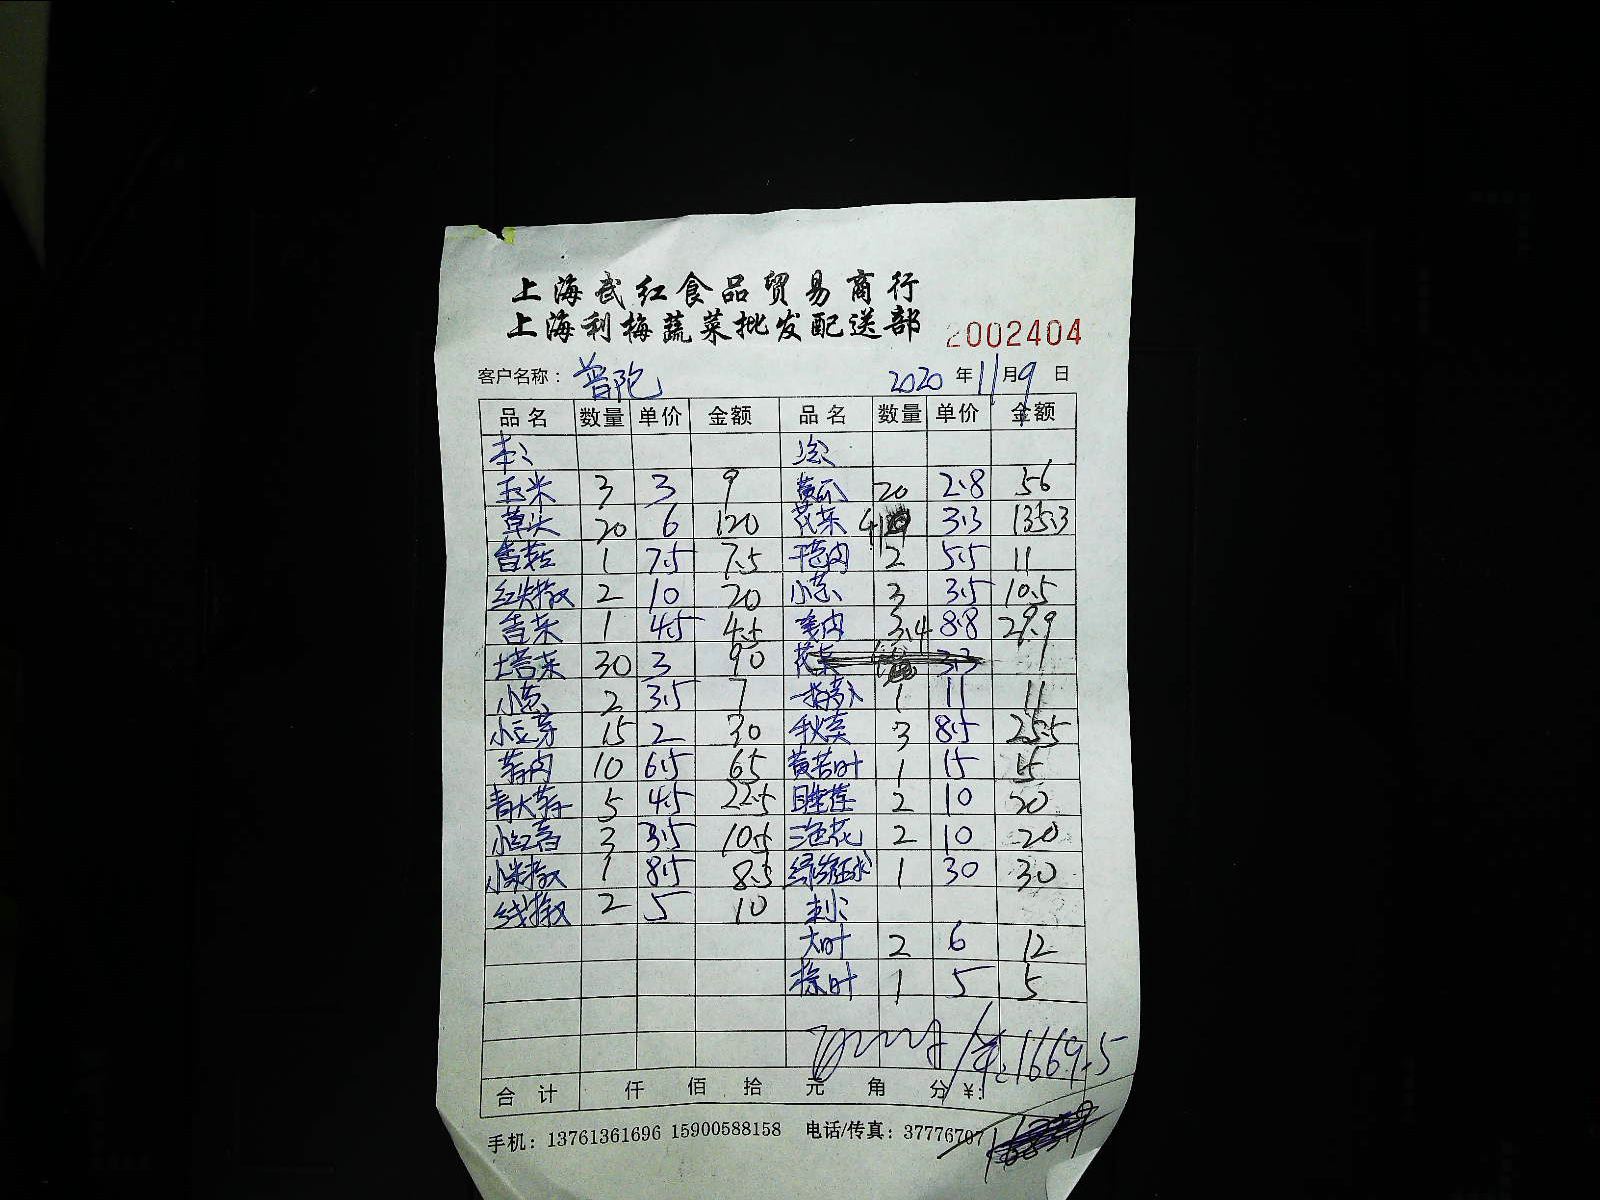 上海武红食品贸易商行
上海利梅蔬菜批发配送部 2002404
客户名称： 普陀 2020 年 11 月 9 日
品名 数量 单价 金额 品名 数量 单价 金额
玉米 3 3 9 黄瓜 20 2.8 56
草头 20 6 120 花菜 41 3.3 135.3
香菇 1 7.5 7.5 2 5.5 11
红尖椒 2 10 20 小葱 3 3.5 10.5
香菜 1 4.5 4.5 姜肉 3.4 8.8 29.9
塔菜 30 3 90 花菜 3.3
小葱 2 3.5 7 1 11 11
小豆芽 15 2 30 秋葵 3 8.5 25.5
10 6.5 65 1 15 15
5 4.5 22.5 2 10 20
3 3.5 10.5 三色花 2 10 20
小米椒 1 8.5 8.5 1 30 30
线椒 2 5 10 刺:
大叶 2 6 12
1 5 5
1669.5
合计 仟 佰 拾 元 角 分 ¥:
手机：13761361696 15900588158 电话/传真：37776707